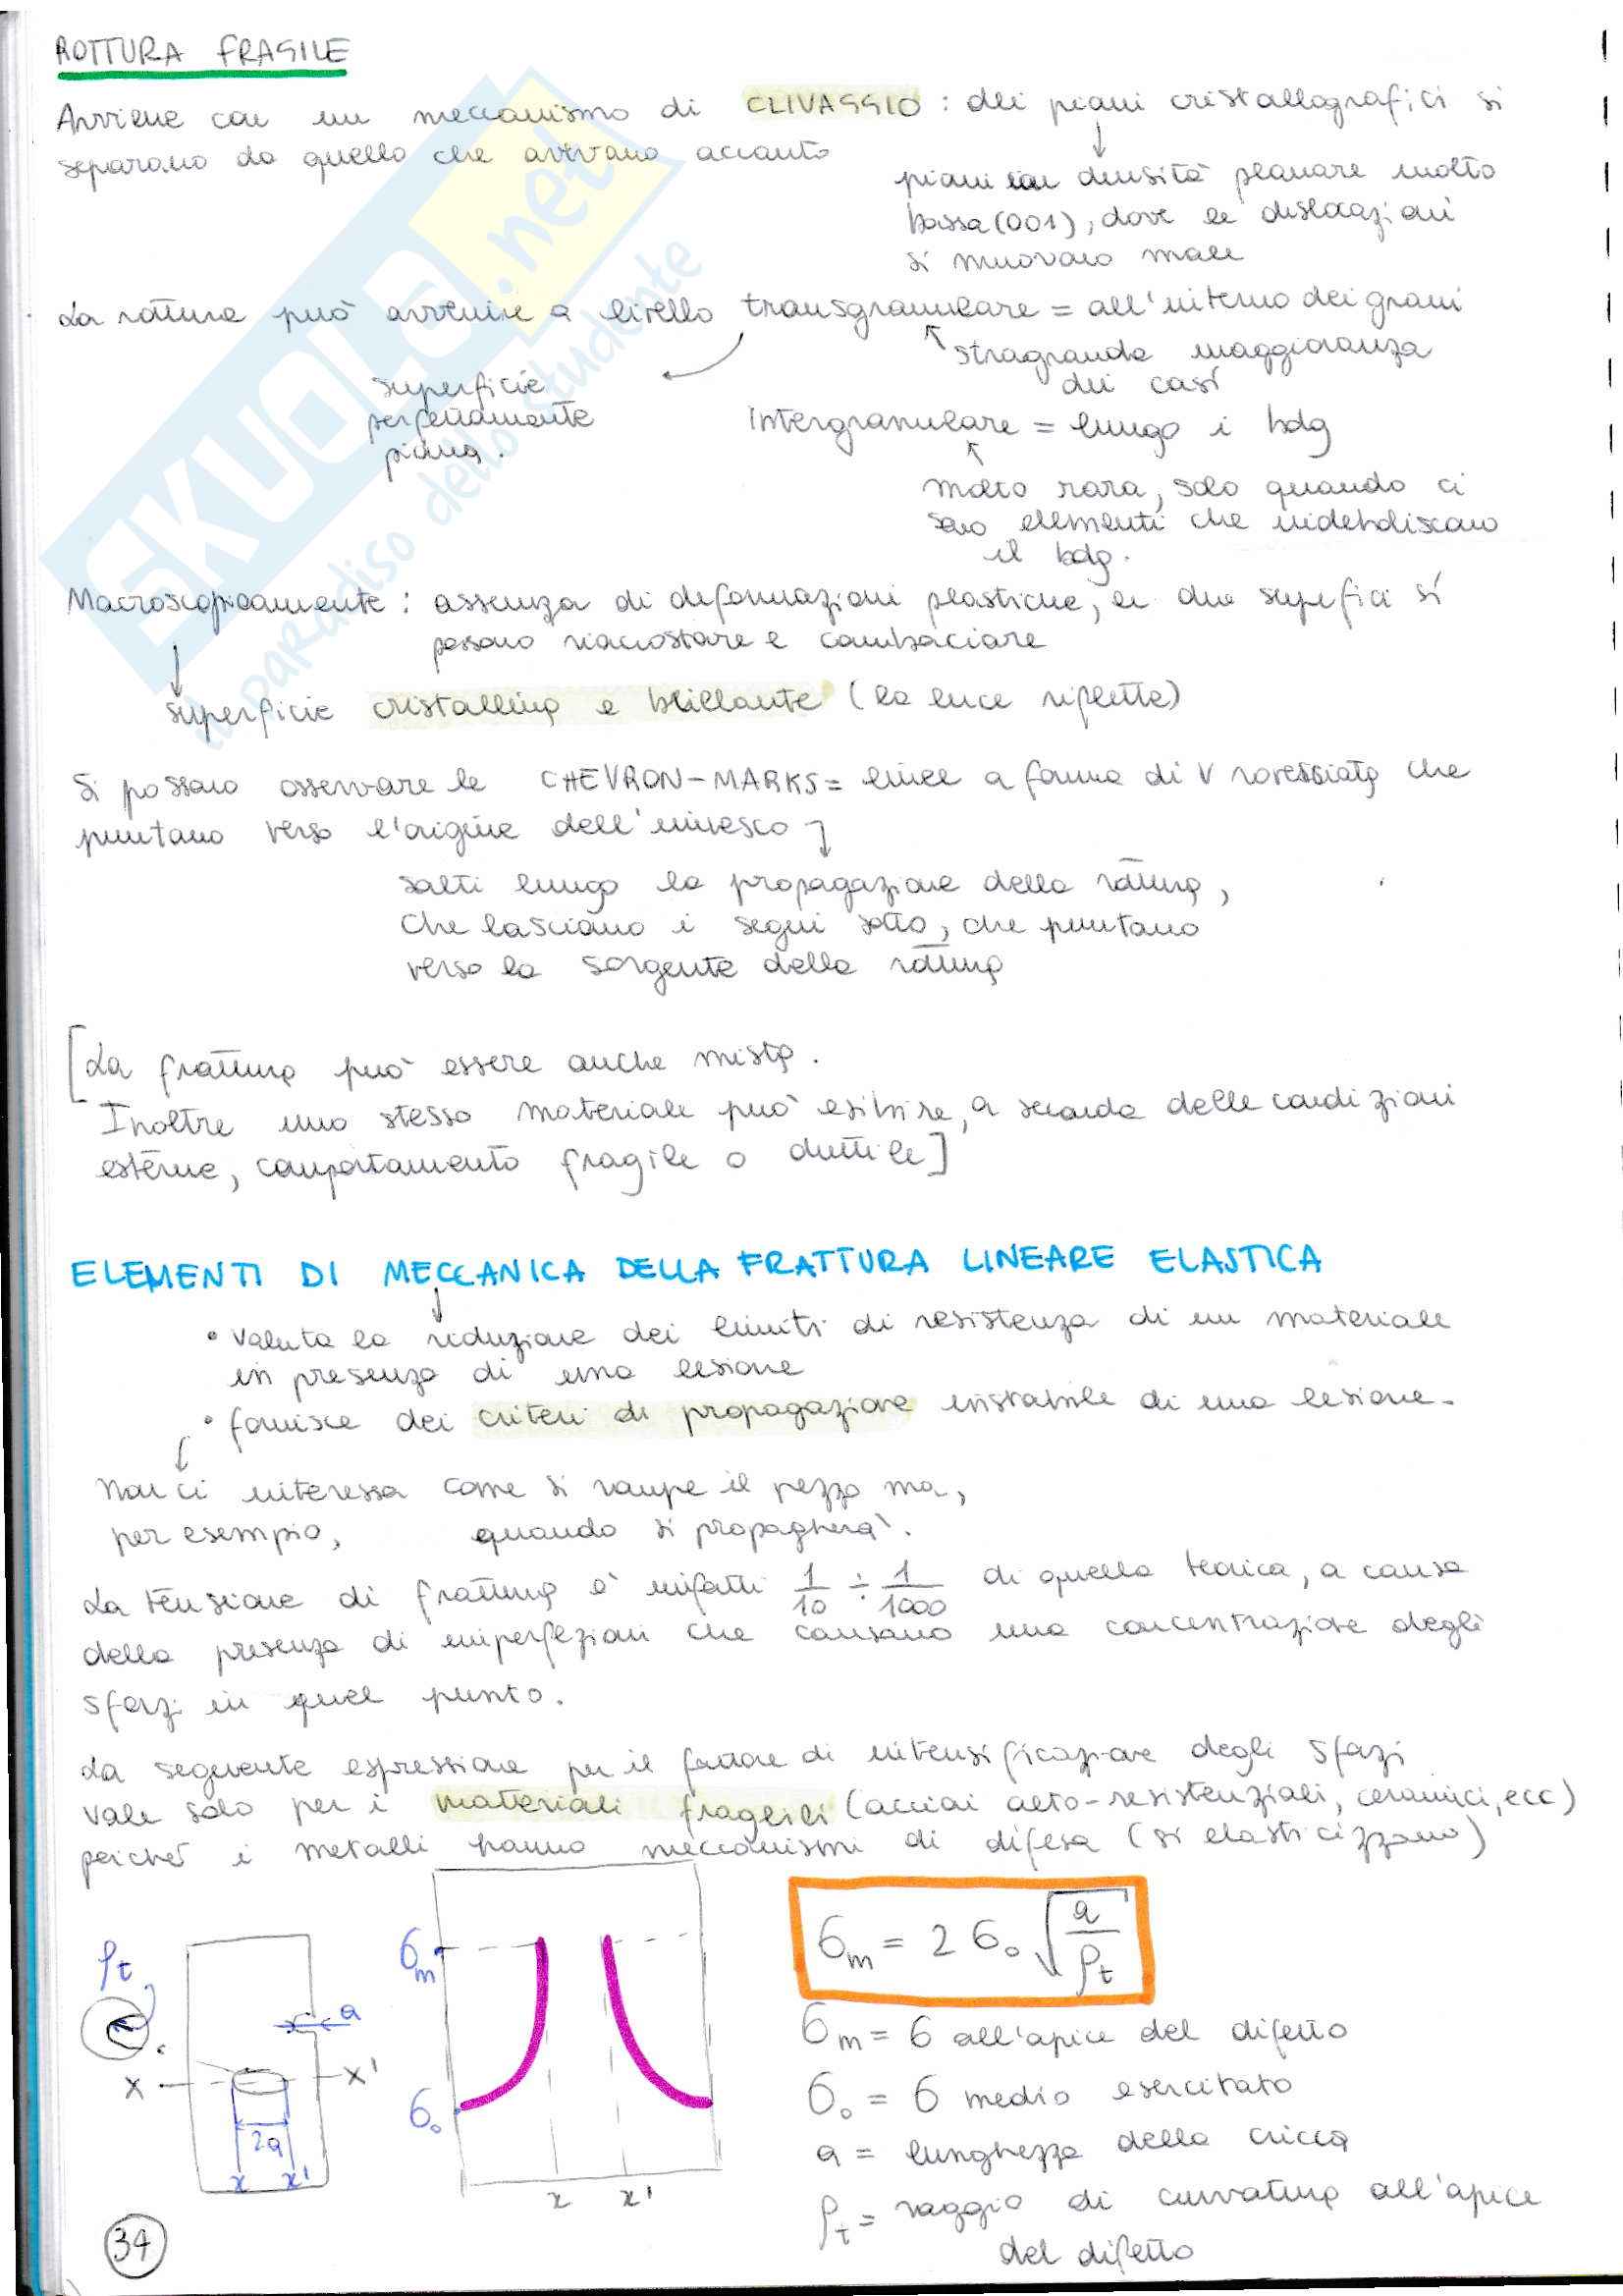 ROTTURA FRAGILE
Avviene con un meccanismo di CLIVAGGIO : dei piani cristallografici si
separano da quello che avevano accanto
piani con densità planare molto
bassa (001), dove le dislocazioni
si muovano male
La rottura può avvenire a livello transgranulare = all'interno dei grani
stragrande maggioranza
dei casi
superficie
perfettamente
piana.
Intergranulare = lungo i bdg
molto rara, solo quando ci
sono elementi che indeboliscano
il bdg.
Macroscopicamente : assenza di deformazioni plastiche, le due superfici si
possono riaccostare e combaciare
superficie cristallina e brillante (la luce riflette)
Si possono osservare le CHEVRON-MARKS = linee a forma di V rovesciata che
puntano verso l'origine dell'innesco
salti lungo la propagazione della rottura,
che lasciano i segni sotto, che puntano
verso la sorgente della rottura
[La frattura può essere anche mista.
Inoltre uno stesso materiale può esibire, a seconda delle condizioni
esterne, comportamento fragile o duttile]
ELEMENTI DI MECCANICA DELLA FRATTURA LINEARE ELASTICA
• Valuta la riduzione dei limiti di resistenza di un materiale
in presenza di una lesione
• fornisce dei criteri di propagazione instabile di una lesione.
Non ci interessa come si rompe il pezzo ma,
per esempio, quando si propagherà.
La tensione di frattura è infatti 1/10 ÷ 1/1000 di quella teorica, a causa
della presenza di imperfezioni che causano una concentrazione degli
sforzi in quel punto.
La seguente espressione per il fattore di intensificazione degli sforzi
vale solo per i materiali fragili (acciai alto-resistenziali, ceramici, ecc)
perché i metalli hanno meccanismi di difesa (si elasticizzano)
ρt
a
x x'
2a
x x'
σm
σ0
x x'
σm = 2 σ0 √(a/ρt)
σm = σ all'apice del difetto
σ0 = σ medio esercitato
a = lunghezza della cricca
ρt = raggio di curvatura all'apice
del difetto
34
SKUOLA.net
il paradiso dello studente